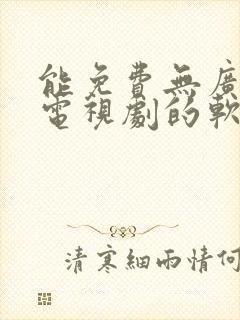 能免費無廣
電視劇的軟
清寒細雨情何